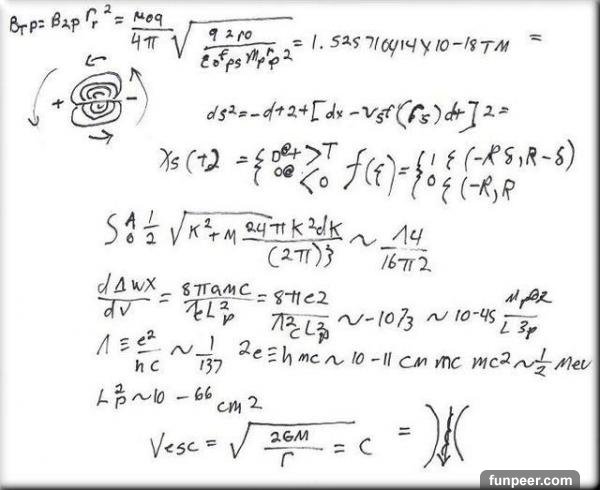 BTP = B2p rr² = μoq/4π √(q 2ro/εo f ps Mp r p 2) = 1.525710414 x 10-18TM =
ds2 = -d+2+[dx - Vsf(rs)dt]2=
Xs(+2 = { 0@+ > T 0@ < 0 f(ξ) = { 1 ξ(-R δ, R-δ) 0 ξ(-R, R
S A 0 1/2 √K²+M 24πK²dK/(2π)3 ~ Λ4/16π2
+ -
dΔwx/dv = 8πamc/ħL²p = 8πe2/Λ²cL²p ~ -1073 ~ 10-45 Mp@2/L3p
Λ ≡ e²/hc ~ 1/137 2e ≡ hmc ~ 10-11 cm mc mc2 ~ 1/2 Mev
L²p ~ 10 - 66 cm2
Vesc = √2GM/r = C =
funpeer.com